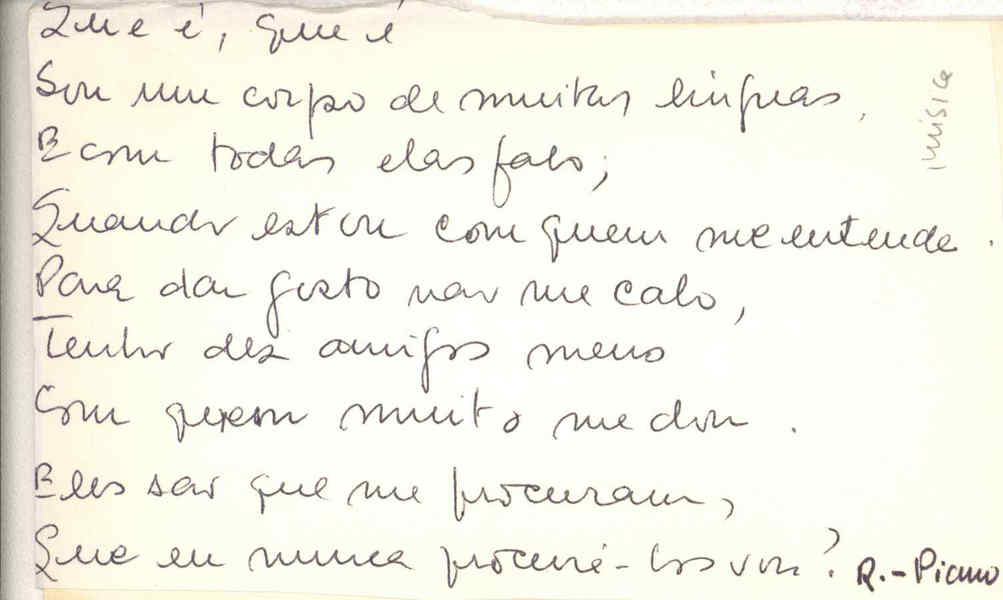 Que é, que é
Sou um corpo de muitas línguas,
E com todas elas falo;
Quando estou com quem me entende.
Para dar gosto não me calo,
Tenho dez amigos meus
Com quem muito me dou.
Eles são que me procuram,
Que eu nunca procurá-los vou? R.-Piano
música